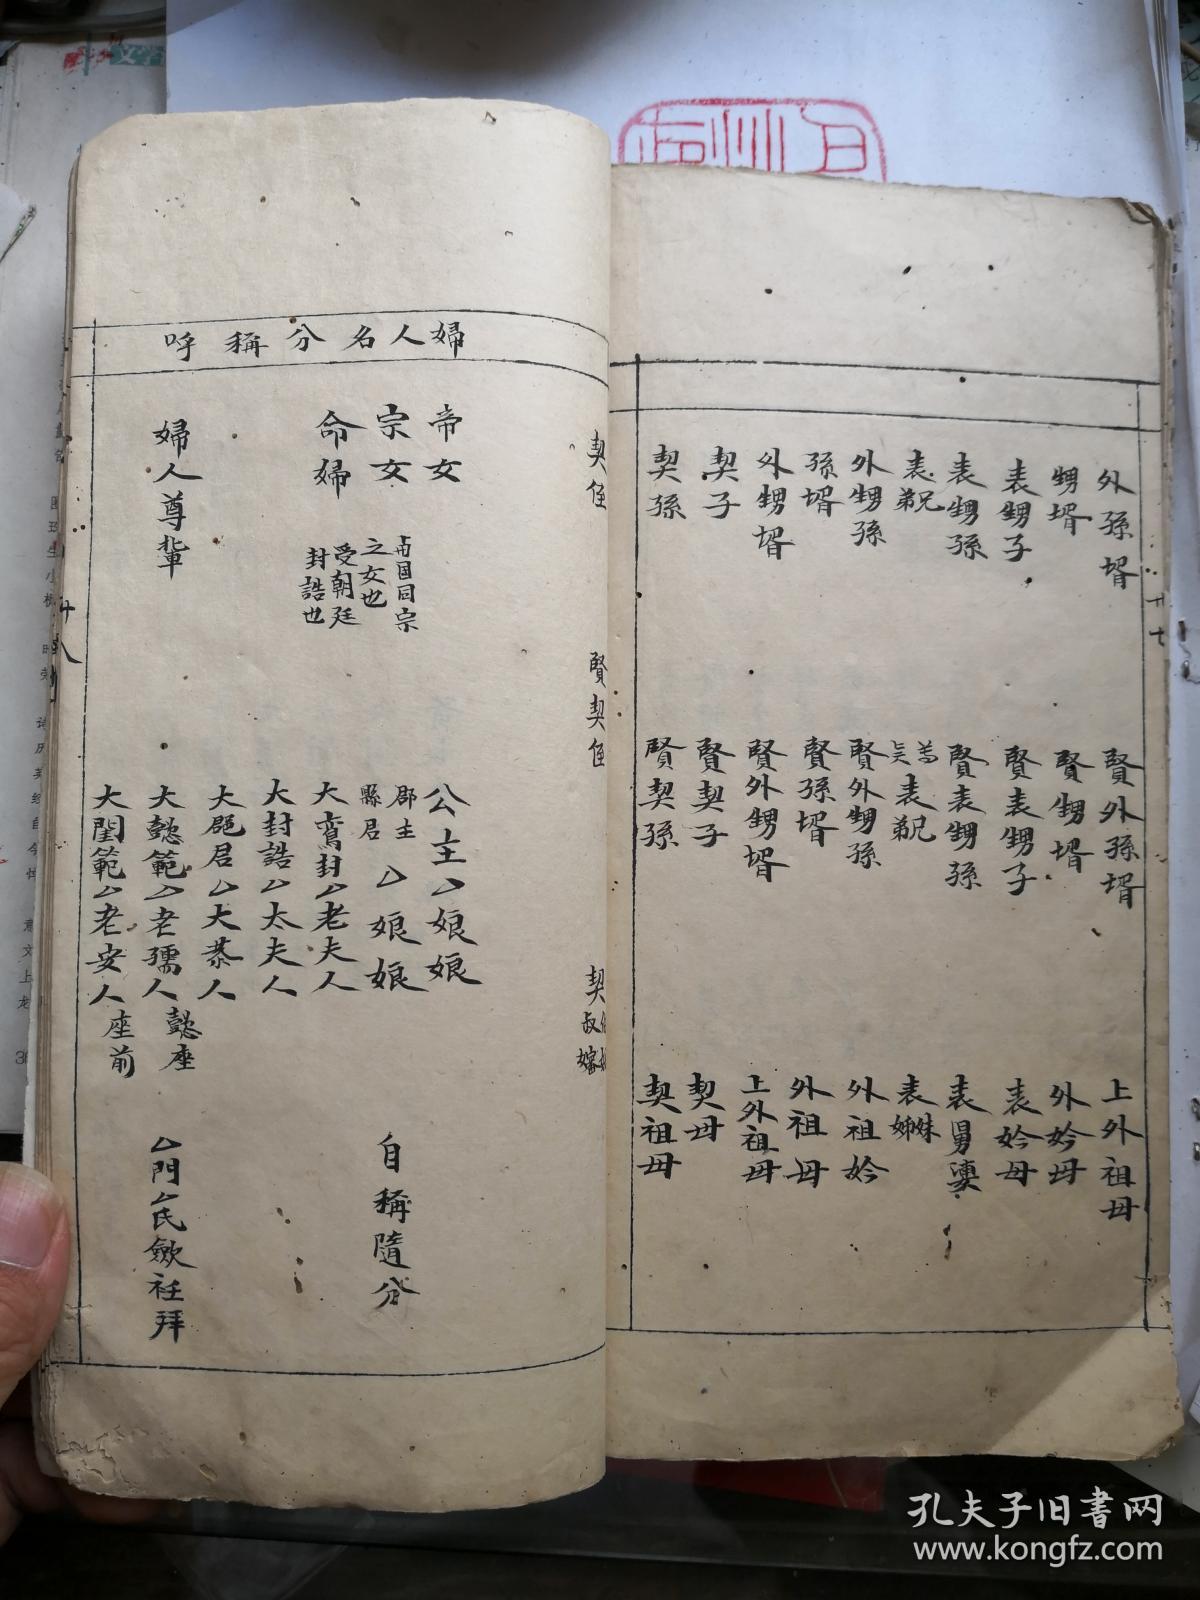 外孫壻　賢外孫壻　上外祖母
甥壻　賢甥壻　外妗母
表甥子　賢表甥子　表妗母
表甥孫　賢表甥孫　表舅
表兄弟　表兄弟　表姊妹
外甥孫　賢外甥孫　外祖妗
孫壻　賢孫壻　外祖母
外甥壻　賢外甥壻　上外祖母
契子　賢契子　契母
契孫　賢契孫　契祖母
廿七
契侄　賢契侄　契叔
婦人名分稱呼
帝女　公主厶娘娘
宗女　与国同宗之女也　郡主縣君厶娘娘　自稱隨分
命婦　受朝廷封誥也　大鸞封厶老夫人
大封誥厶太夫人
大郡君厶大恭人
婦人尊輩　大懿範厶老孺人懿座　厶門厶氏歛衽拜
大閨範厶老安人座前
廿八
孔夫子旧书网
www.kongfz.com